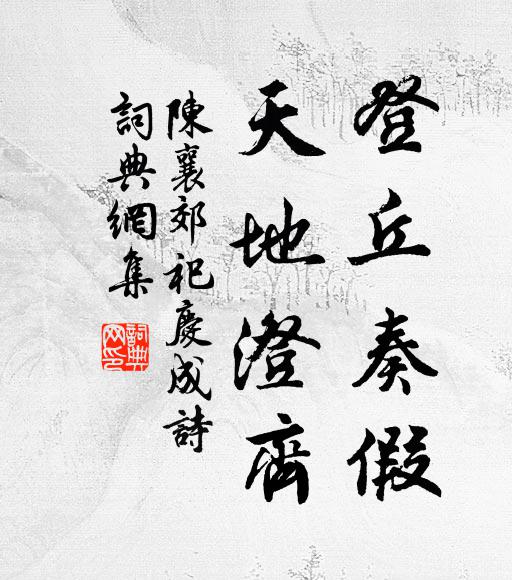 登丘奏假
天地澄齊
陳襄郊祀慶成詩
詞典網集
詞典
网印